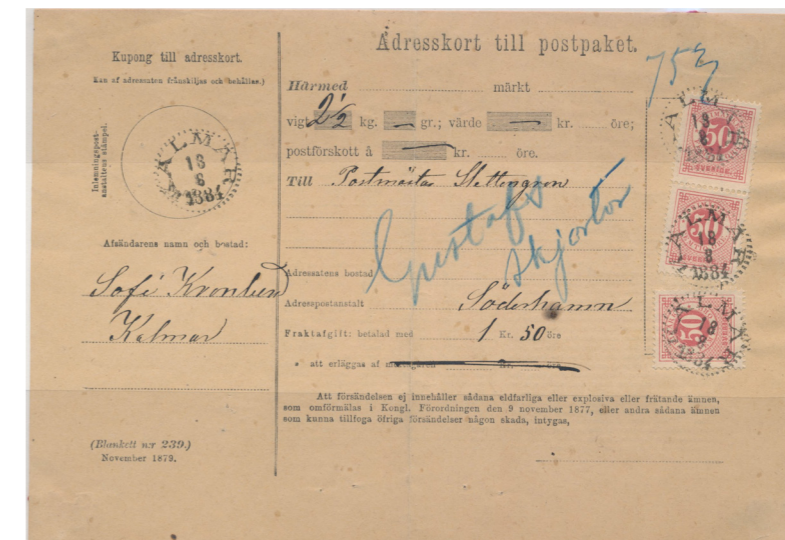 Kupong till adresskort.
(Kan af adressaten frånskiljas och behållas.)
Inlemningspost-
anstaltens stämpel.
KALMAR
18
8
1884
Afsändarens namn och bostad:
Sofi
Kalmar
(Blankett n:r 239.)
November 1879.
Adresskort till postpaket.
Härmed märkt
vigt 2 1/2 kg. — gr.; värde — kr. öre;
postförskott å — kr. öre.
Till Postmästar
Gustafs
skjortor
Adressatens bostad
Adresspostanstalt Söderhamn
Fraktafgift: betalad med 1 Kr. 50 öre
" att erläggas af mottagaren Kr. öre
Att försändelsen ej innehåller sådana eldfarliga eller explosiva eller frätande ämnen,
som omförmälas i Kongl. Förordningen den 9 november 1877, eller andra sådana ämnen
som kunna tillfoga öfriga försändelser någon skada, intygas,
50
SVERIGE
KALMAR
18
8
1884
50
KALMAR
18
8
1884
50
KALMAR
18
8
1884